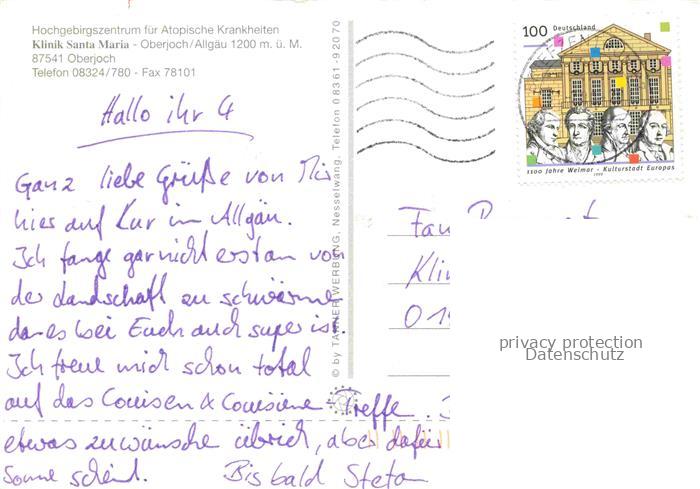 Hochgebirgszentrum für Atopische Krankheiten
Klinik Santa Maria - Oberjoch/Allgäu 1200 m. ü. M.
87541 Oberjoch
Telefon 08324/780 - Fax 78101
Hallo ihr 4
Ganz liebe Grüße von Mir
hier auf Kur im Allgäu.
Ich fange gar nicht erst an von
der Landschaft zu schwärme
da es bei Euch auch super ist.
Ich freue mich schon total
auf das Cousin & Cousine-Treffe.
etwas zu wünsche übrich, aber dafür
Sonne scheint. Bis bald Stefan
© by TANNER WERBUNG, Nesselwang, Telefon 08361-92070
100 Deutschland
1100 Jahre Weimar - Kulturstadt Europas
1999
Fam
Kli
01
privacy protection
Datenschutz